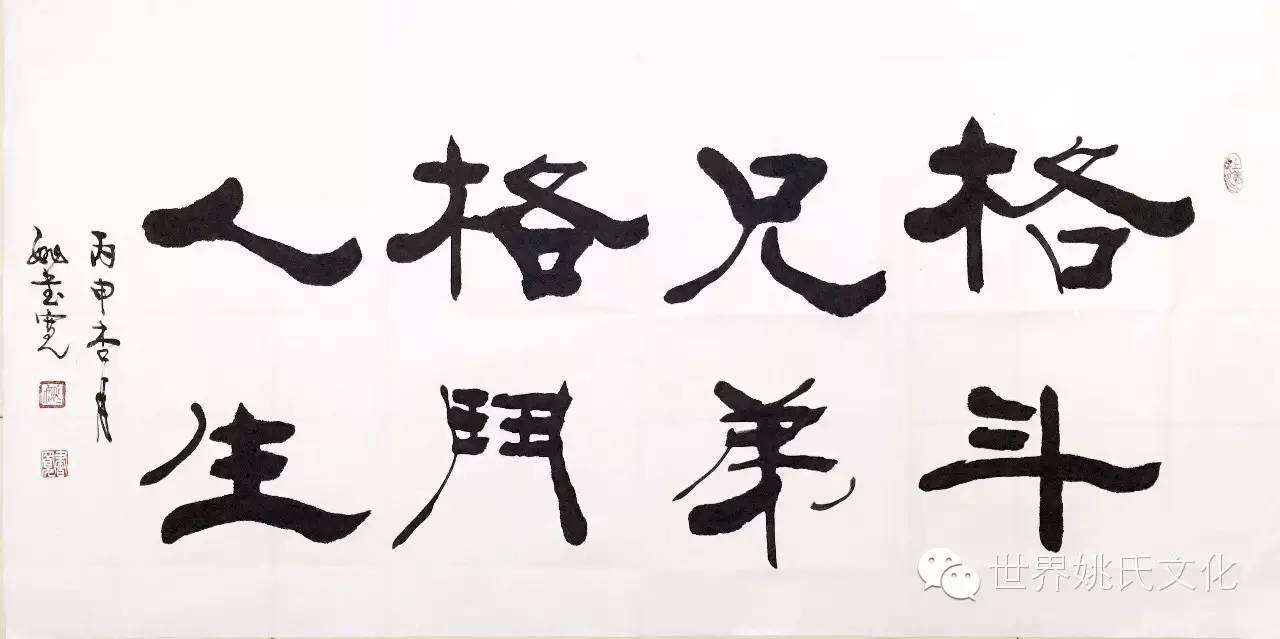 格斗
兄弟
格鬥
人生
丙申杏月
姚書寬
世界姚氏文化